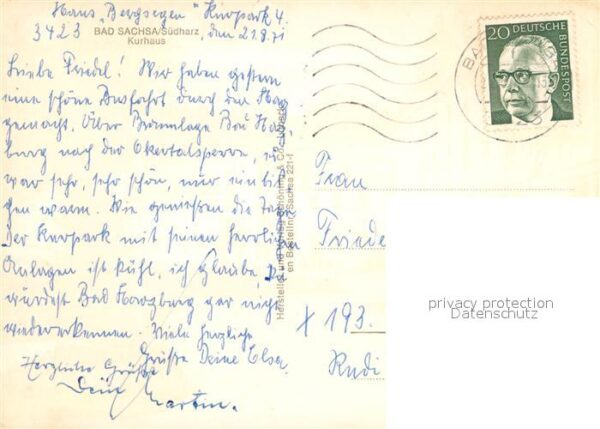 Haus „Bergsegen" Kurpark 4.
3423
BAD SACHSA/Südharz
Kurhaus
den 21.8.71
Liebe Friedel! Wir haben gestern
eine schöne Busfahrt durch den Harz
gemacht. Über Braunlage Bad Harz
burg nach der Okertalsperre, es
war sehr, sehr schön, nur ein biß
chen warm. Wir genießen die Tage
Der Kurpark mit seinen herrlichen
Anlagen ist kühl, ich glaube, Du
würdest Bad Harzburg gar nicht
wiedererkennen. Viele herzliche
Grüße Deine Elsa.
Herzliche Grüße
Dein Martin.
Hersteller und Verlag Schöning & Co
Bestellnr. Sachsa 221
20 DEUTSCHE BUNDESPOST
Frau
Friede
X 193
Rudi
privacy protection
Datenschutz